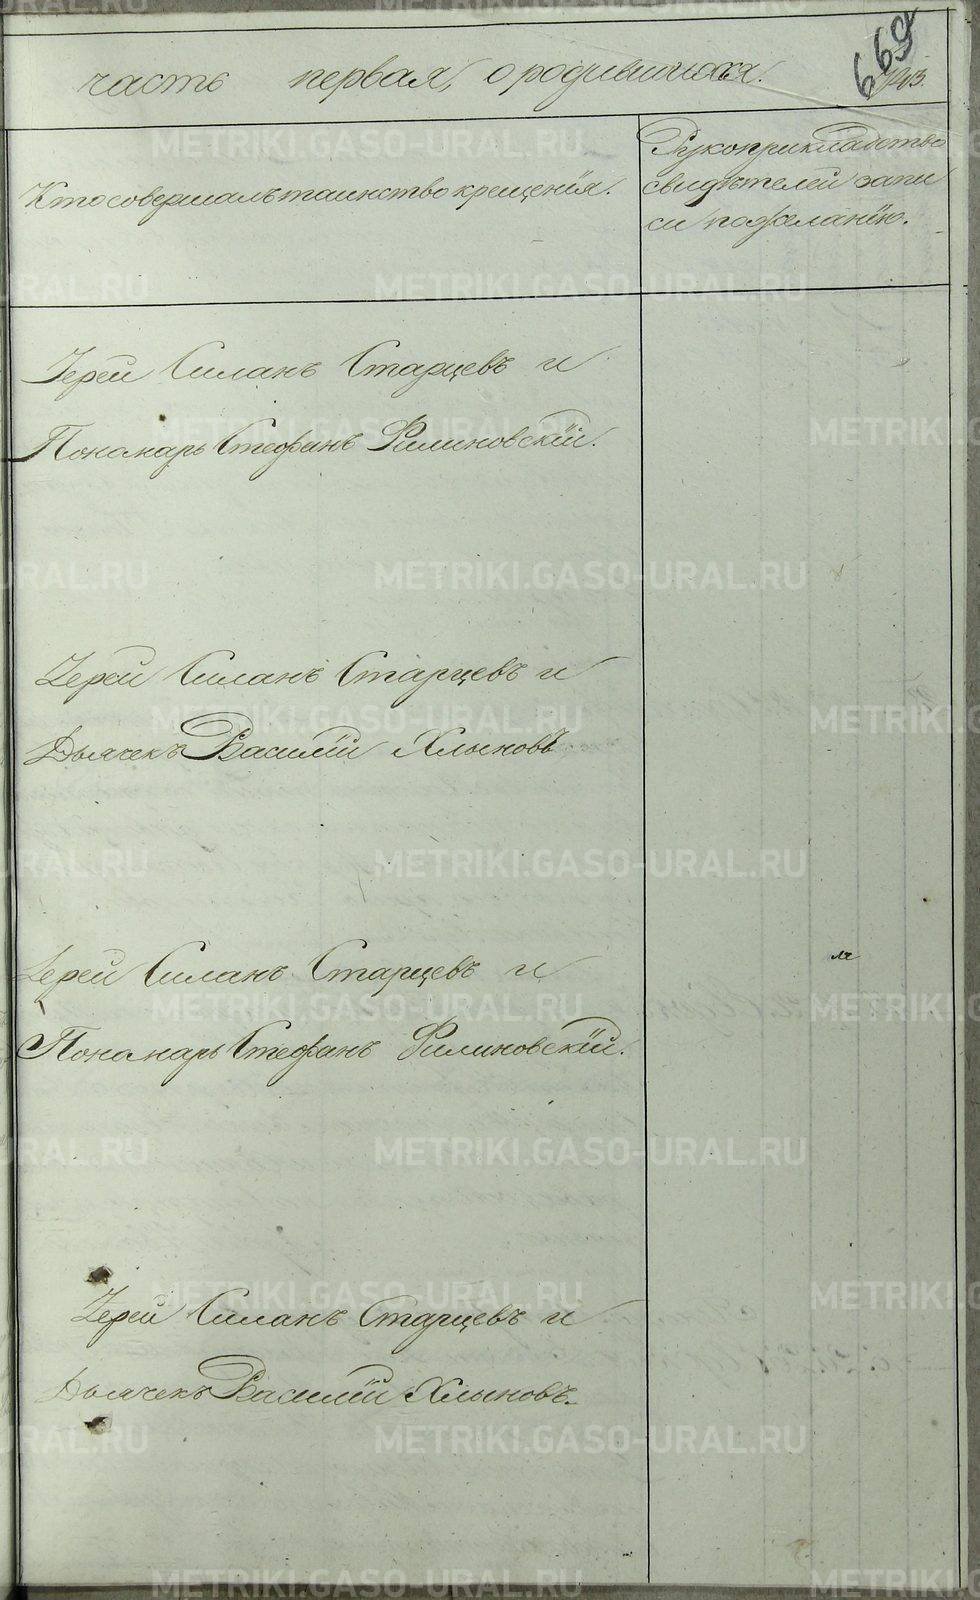 часть первая, о родившихся.
669
Кто совершалъ таинство крещенія.
Рукоприкладство
свидѣтелей запи
си по желанію.
Іерей Силанъ Старцевъ и
Пономарь Стефанъ Филиновскій.
Іерей Силанъ Старцевъ и
Дьячекъ Василій Хлыновъ
Іерей Силанъ Старцевъ и
Пономарь Стефанъ Филиновскій.
Іерей Силанъ Старцевъ и
Дьячекъ Василій Хлыновъ.
METRIKI.GASO-URAL.RU